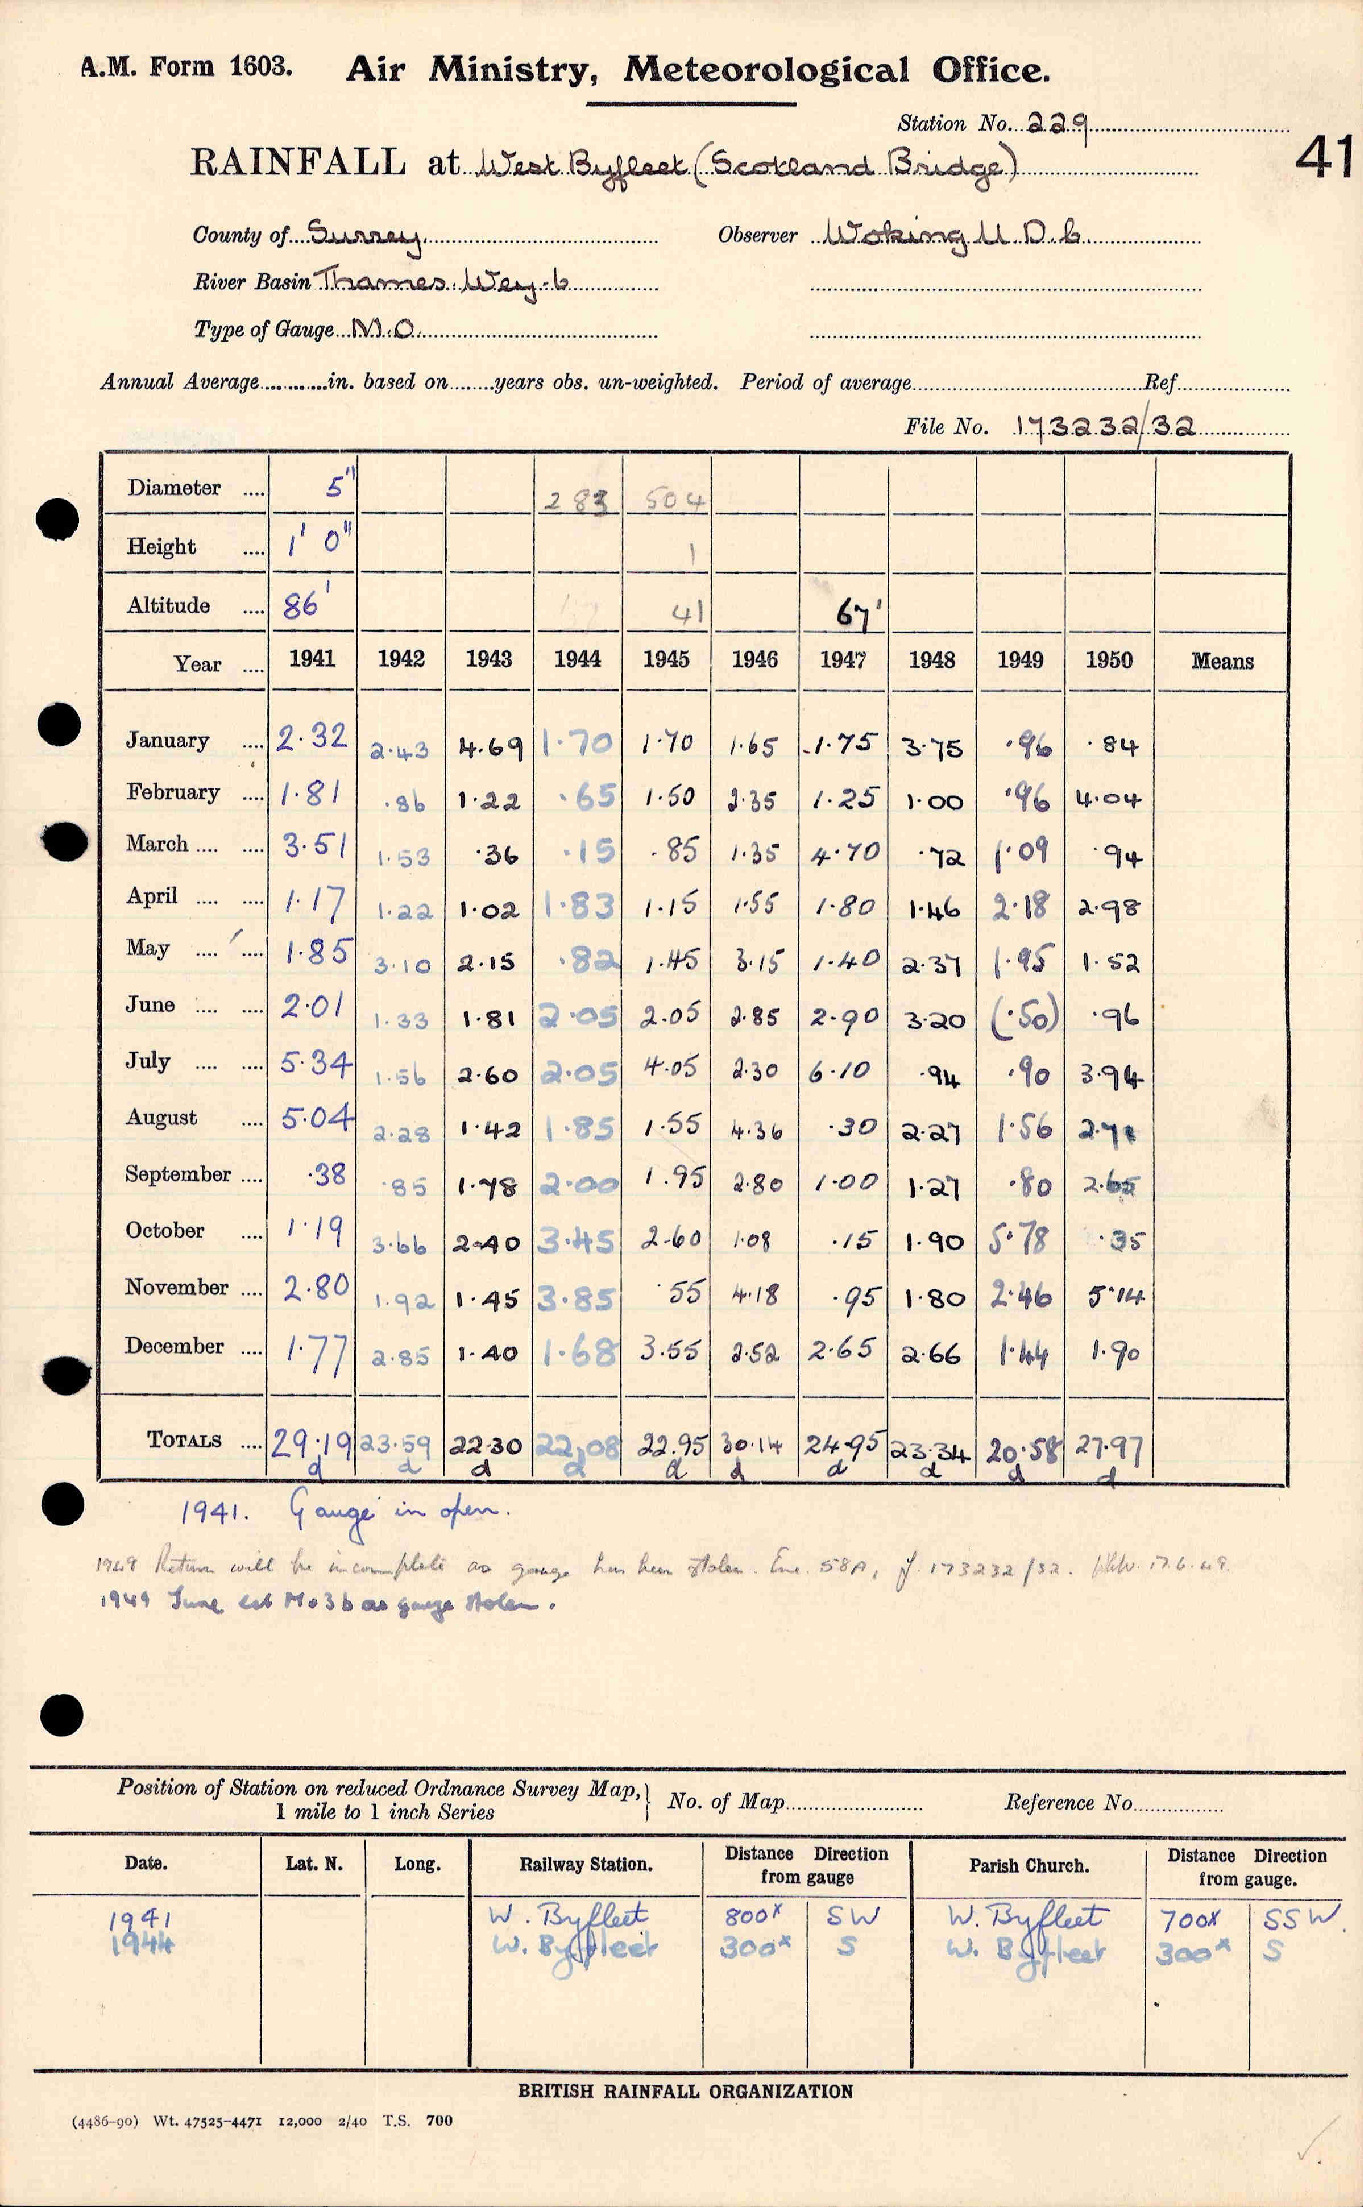 A.M. Form 1603. Air Ministry, Meteorological Office.
Station No. 229
41
RAINFALL at West Byfleet (Scotland Bridge)
County of Surrey Observer Woking U.D.C.
River Basin Thames. Wey-b
Type of Gauge M.O.
Annual Average in. based on years obs. un-weighted. Period of average Ref.
File No. 173232/32
Diameter 5" 283 504
Height 1' 0" 1
Altitude 86' 41 67'
Year 1941 1942 1943 1944 1945 1946 1947 1948 1949 1950 Means
January 2.32 2.43 4.69 1.70 1.70 1.65 1.75 3.75 .96 .84
February 1.81 .86 1.22 .65 1.50 2.35 1.25 1.00 .96 4.04
March 3.51 1.53 .36 .15 .85 1.35 4.70 .72 1.09 .94
April 1.17 1.22 1.02 1.83 1.15 1.55 1.80 1.46 2.18 2.98
May 1.85 3.10 2.15 .82 1.45 3.15 1.40 2.37 1.95 1.52
June 2.01 1.33 1.81 2.05 2.05 2.85 2.90 3.20 (.50) .96
July 5.34 1.56 2.60 2.05 4.05 2.30 6.10 .94 .90 3.94
August 5.04 2.28 1.42 1.85 1.55 4.36 .30 2.27 1.56 2.71
September .38 .85 1.78 2.00 1.95 2.80 1.00 1.27 .80 2.65
October 1.19 3.66 2.40 3.45 2.60 1.08 .15 1.90 5.78 .35
November 2.80 1.92 1.45 3.85 .55 4.18 .95 1.80 2.46 5.14
December 1.77 2.85 1.40 1.68 3.55 2.52 2.65 2.66 1.44 1.90
TOTALS 29.19 23.59 22.30 22.08 22.95 30.14 24.95 23.34 20.58 27.97
d d d d d d d d d d
1941. Gauge in open.
1949 Return will be incomplete as gauge has been stolen. Enc. 58A, of 173232/32. 17.6.49.
1949 June est M.O3b as gauge stolen.
Position of Station on reduced Ordnance Survey Map, 1 mile to 1 inch Series No. of Map Reference No.
Date. Lat. N. Long. Railway Station. Distance from gauge Direction Parish Church. Distance from gauge. Direction
1941 W. Byfleet 800x SW W. Byfleet 700x SSW.
1944 W. Byfleet 300x S W. Byfleet 300x S
BRITISH RAINFALL ORGANIZATION
(4486-90) Wt. 47525-4471 12,000 2/40 T.S. 700